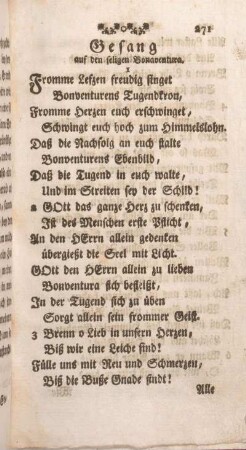 271
Gesang
auf den seligen Bonaventura.
1
Fromme Lefzen freudig singet
Bonventurens Tugendkron,
Fromme Herzen euch erschwinget,
Schwingt euch hoch zum Himmelslohn.
Daß die Nachfolg an euch stalte
Bonventurens Ebenbild,
Daß die Tugend in euch walte,
Und im Streiten sey der Schild!
2 GOtt das ganze Herz zu schenken,
Ist des Menschen erste Pflicht,
An den HErrn allein gedenken
übergießt die Seel mit Licht.
GOtt den HErrn allein zu lieben
Bonventura sich befleißt,
In der Tugend sich zu üben
Sorgt allein sein frommer Geist.
3 Brenn o Lieb in unsern Herzen,
Biß wir eine Leiche sind!
Fülle uns mit Reu und Schmerzen,
Biß die Buße Gnade findt!
Alle